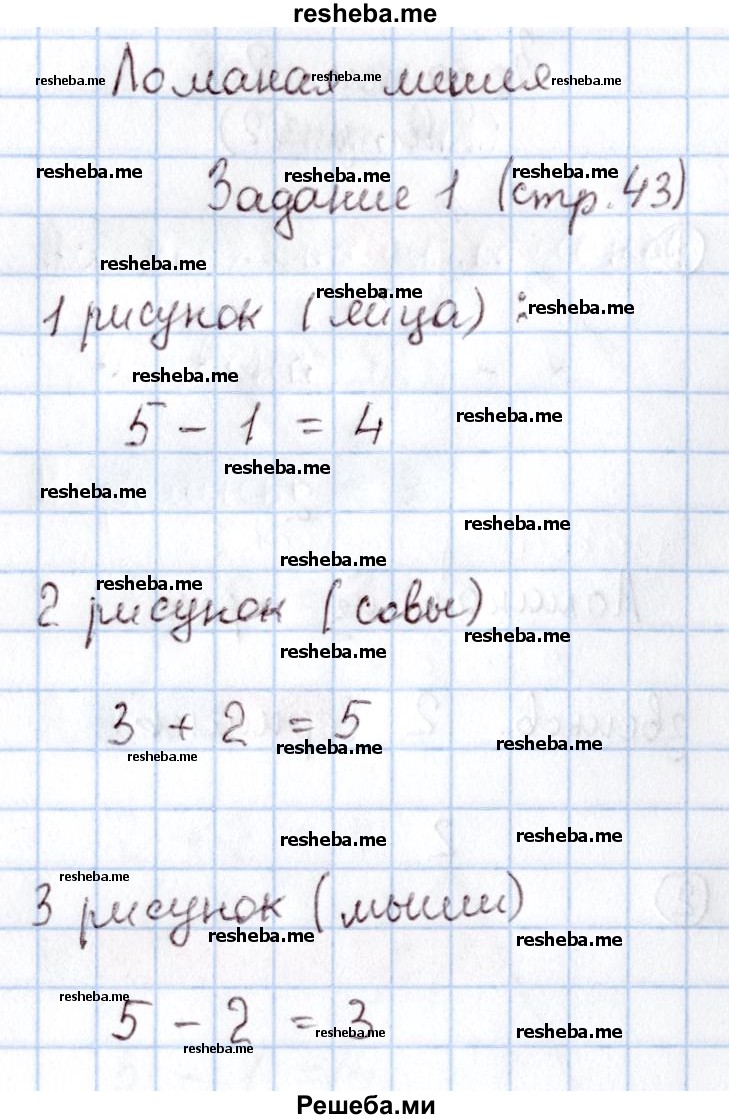 resheba.me
resheba.me resheba.me resheba.me
Ломаная линия
resheba.me resheba.me resheba.me
Задание 1 (стр. 43)
resheba.me
resheba.me resheba.me
1 рисунок (яйца) :
resheba.me
5 - 1 = 4
resheba.me
resheba.me
resheba.me
resheba.me
resheba.me
resheba.me
2 рисунок (совы)
resheba.me
resheba.me
3 + 2 = 5
resheba.me resheba.me resheba.me
resheba.me resheba.me
resheba.me
3 рисунок (мыши)
resheba.me resheba.me
resheba.me
5 - 2 = 3
resheba.me resheba.me
resheba.me
Решеба.ми